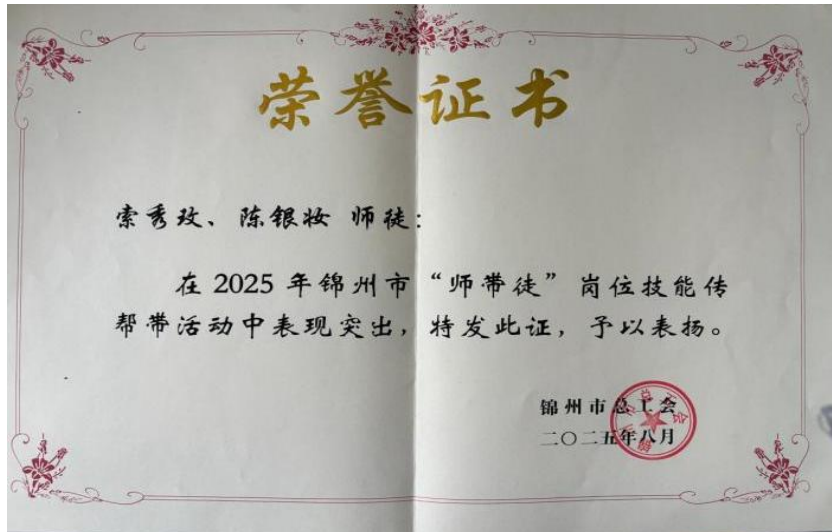 荣誉证书
索秀玫、陈银妆 师徒：
在 2025 年锦州市“师带徒”岗位技能传
帮带活动中表现突出，特发此证，予以表扬。
锦州市总工会
二〇二五年八月